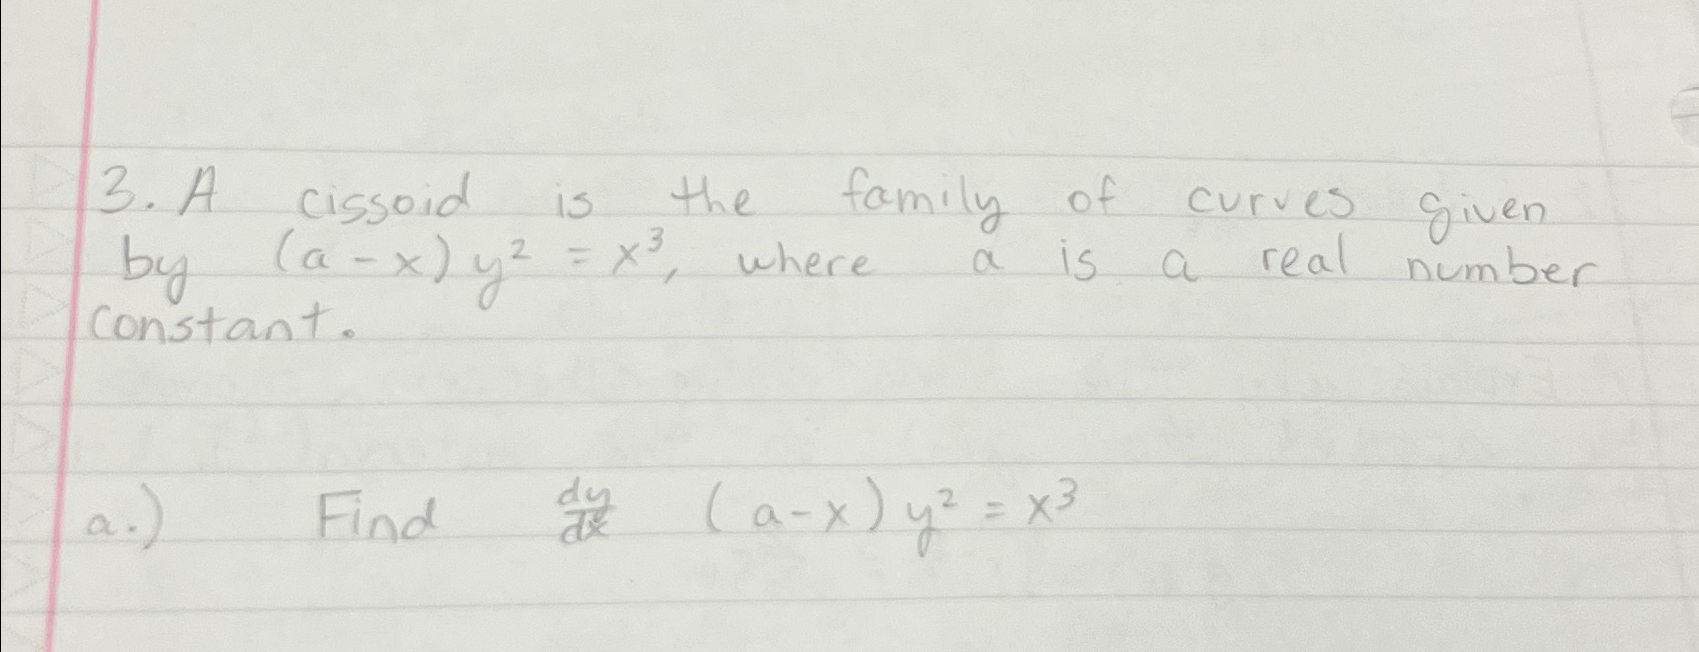 3. A cissoid is the family of curves given
by (a-x)y² = x³, where a is a real number
constant.
a.) Find dy/dx (a-x)y² = x³